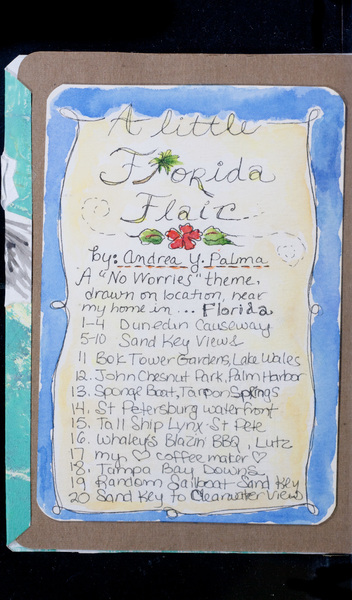 A little
Florida
Flair
by: Andrea Y. Palma
A "No Worries" theme,
drawn on location, near
my home in ... Florida
1-4 Dunedin Causeway
5-10 Sand Key Views
11 Bok Tower Gardens, Lake Wales
12. John Chesnut Park, Palm Harbor
13. Sponge Boat, Tarpon Springs
14. St Petersburg waterfront
15. Tall Ship Lynx-St Pete
16. Whaley's Blazin' BBQ, Lutz
17 my ♡ coffee maker ♡
18. Tampa Bay Downs
19 Random Sailboat Sand Key
20 Sand Key to Clearwater View